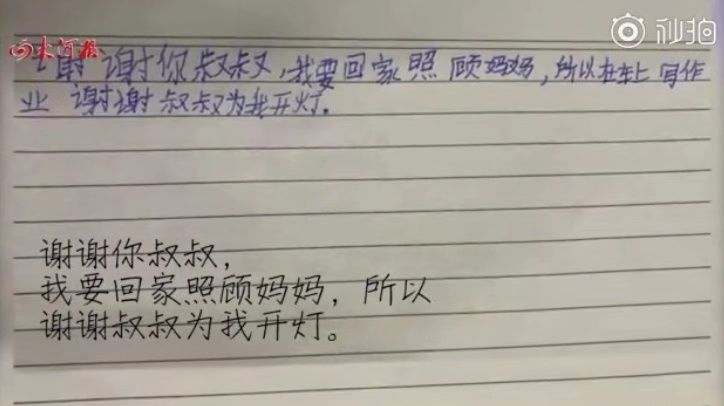 大河报
秒拍
谢谢你叔叔,我要回家照顾妈妈,所以在车上写作
业 谢谢叔叔为我开灯.
谢谢你叔叔,
我要回家照顾妈妈,所以
谢谢叔叔为我开灯。